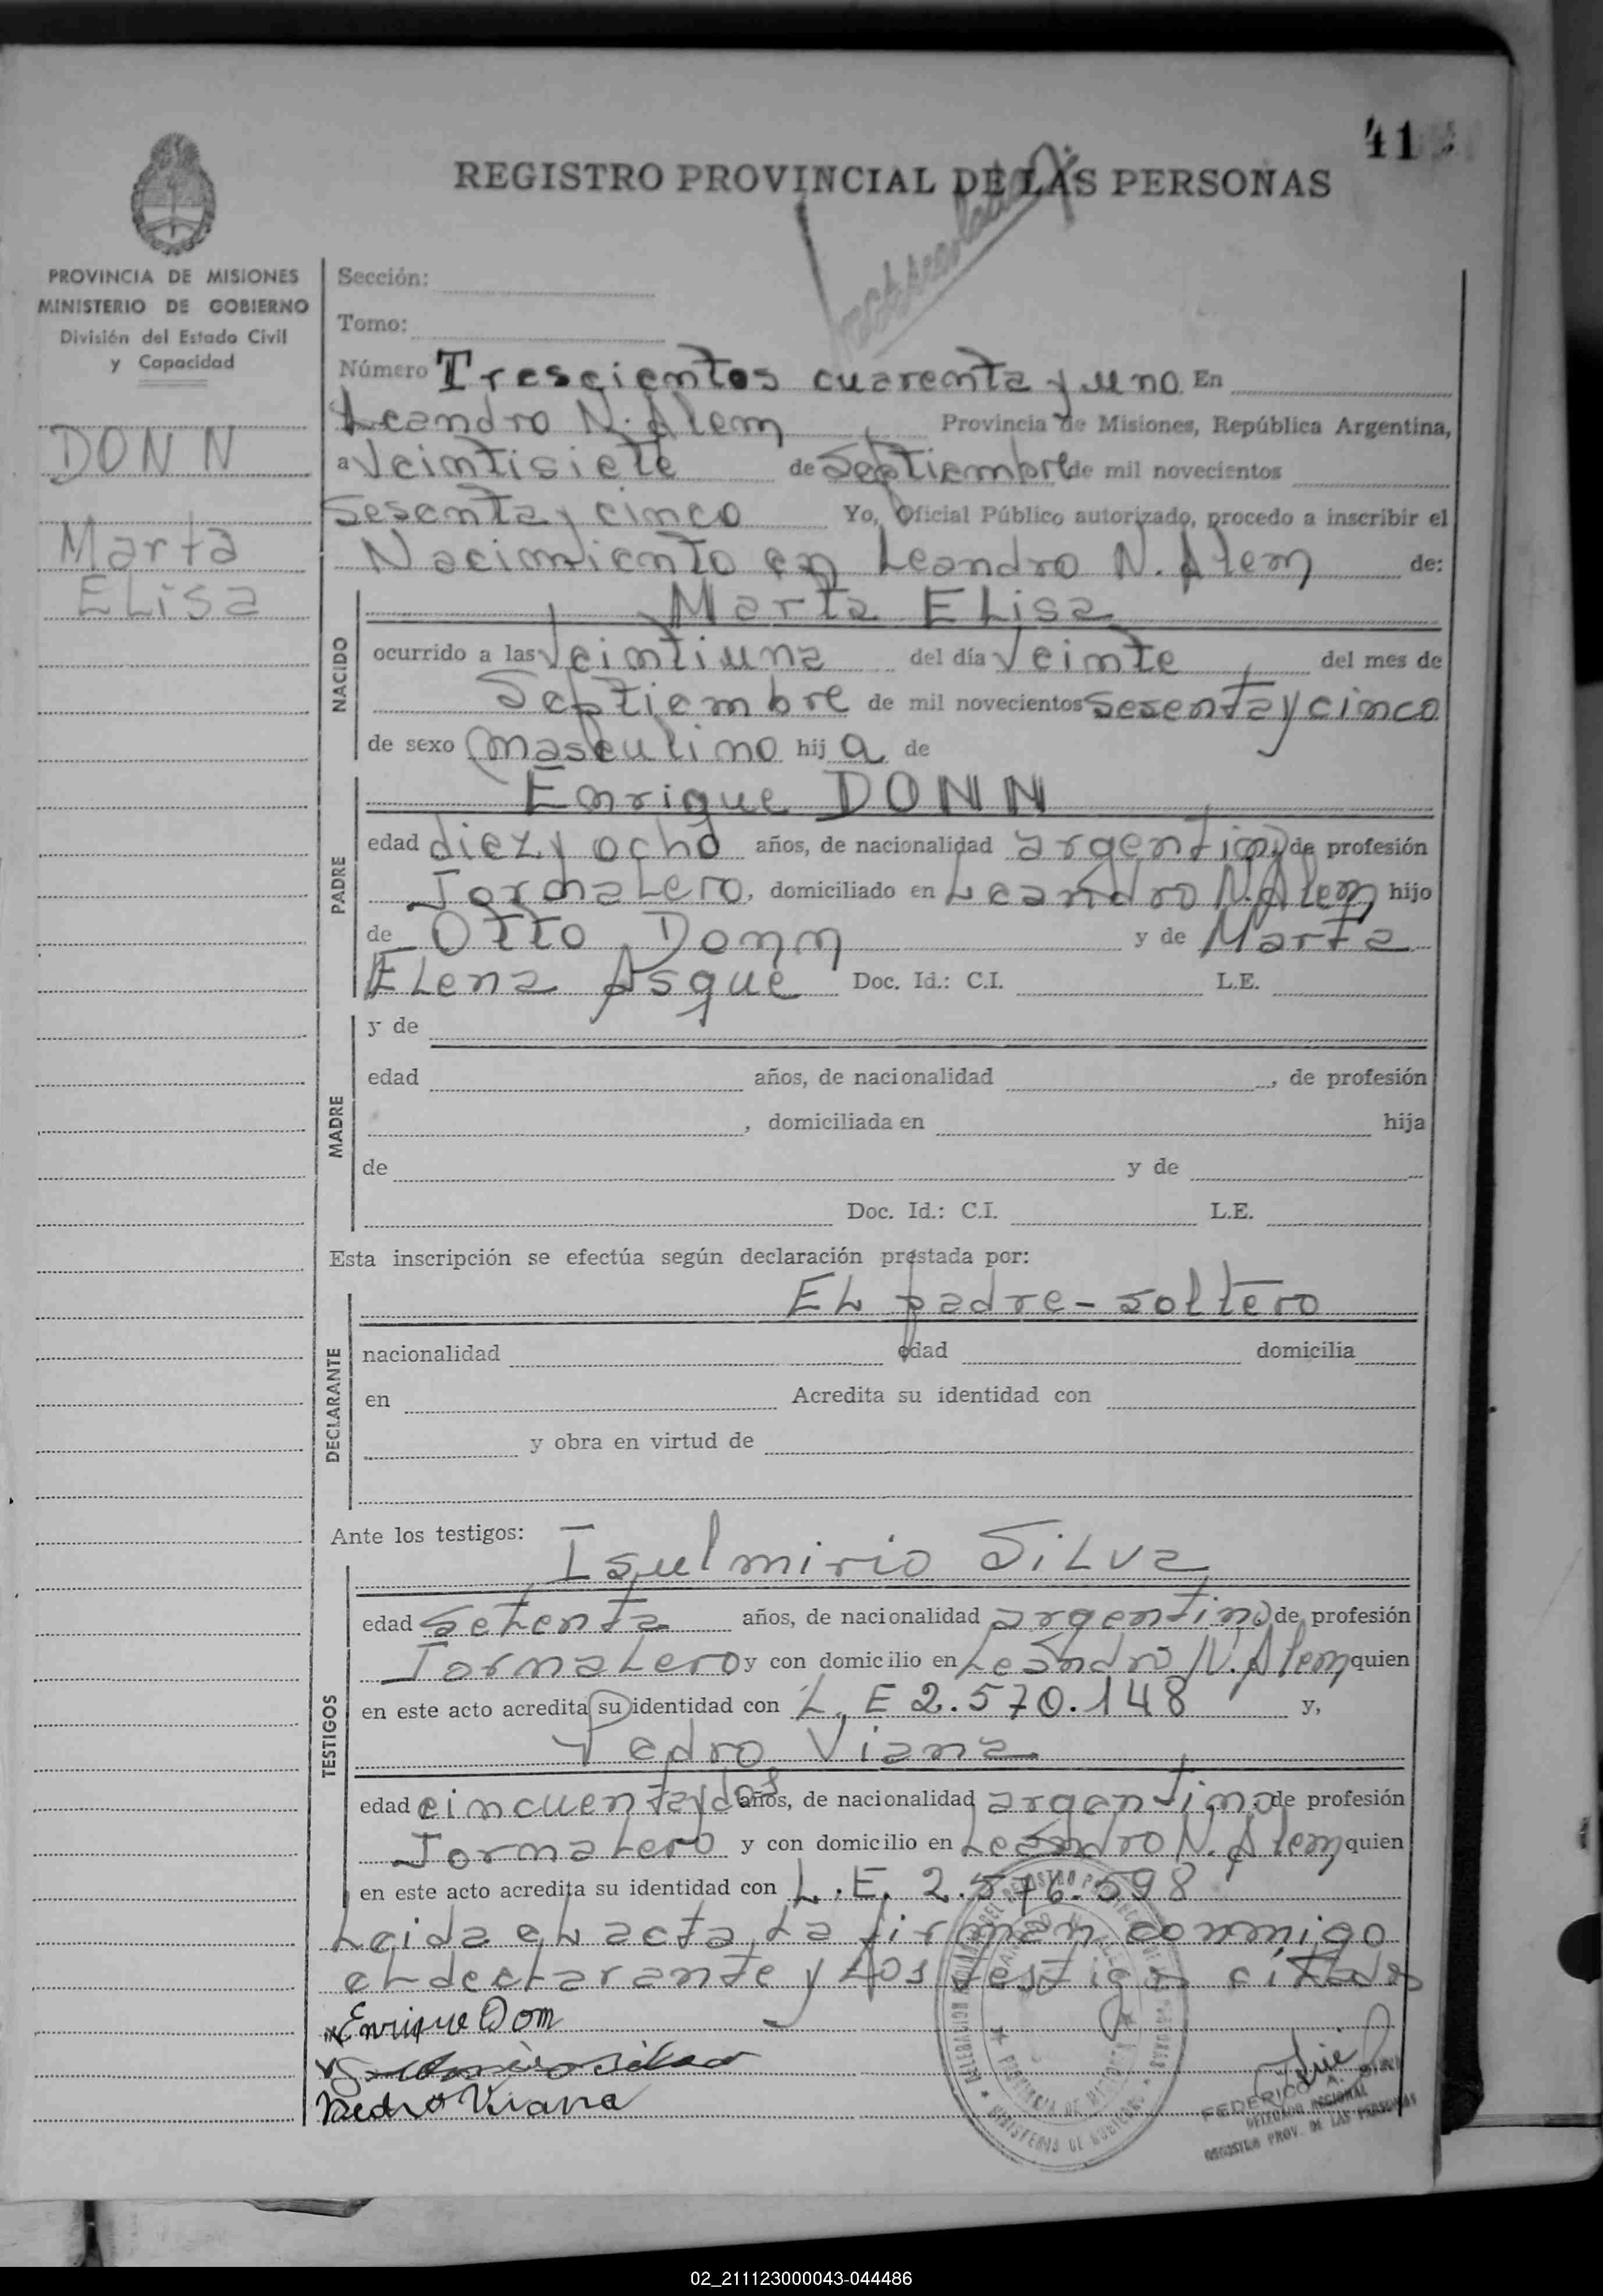 41
REGISTRO PROVINCIAL DE LAS PERSONAS
PROVINCIA DE MISIONES
MINISTERIO DE GOBIERNO
División del Estado Civil
y Capacidad
DONN
Marta
ELisa
Sección:
Tomo:
Número Trescientos cuarenta y uno En
Leandro N. Alem, Provincia de Misiones, República Argentina,
a Veintisiete de Septiembre de mil novecientos
Sesenta y cinco Yo, Oficial Público autorizado, procedo a inscribir el
Nacimiento en Leandro N. Alem de:
NACIDO
Marta ELisa
ocurrido a las Veintiuna del día Veinte del mes de
Septiembre de mil novecientos sesenta y cinco
de sexo masculino hij a de
PADRE
Enrique DONN
edad diez y ocho años, de nacionalidad argentino, de profesión
JornaLero, domiciliado en Leandro N. Alem hijo
de Otto Donn y de Marta
ELena Asque Doc. Id.: C.I. L.E.
MADRE
y de
edad años, de nacionalidad , de profesión
, domiciliada en hija
de y de
Doc. Id.: C.I. L.E.
Esta inscripción se efectúa según declaración prestada por:
DECLARANTE
EL padre - soltero
nacionalidad edad domicilia
en Acredita su identidad con
y obra en virtud de
Ante los testigos:
TESTIGOS
Isulmirio SiLva
edad Setenta años, de nacionalidad argentino de profesión
JornaLero y con domicilio en Leandro N. Alem quien
en este acto acredita su identidad con L. E 2.570.148 y,
Pedro Viana
edad cincuenta y dos años, de nacionalidad argentino de profesión
JornaLero y con domicilio en Leandro N. Alem quien
en este acto acredita su identidad con L.E. 2.576.598
Leida eL acta, La firman conmigo
eL decLarante y Los testigos citados
Enrique Don
Pedro Viana
FEDERICO A.
DELEGADO REGIONAL
REGISTRO PROV. DE LAS PERSONAS
PROVINCIA DE MISIONES
MINISTERIO DE GOBIERNO
02_211123000043-044486